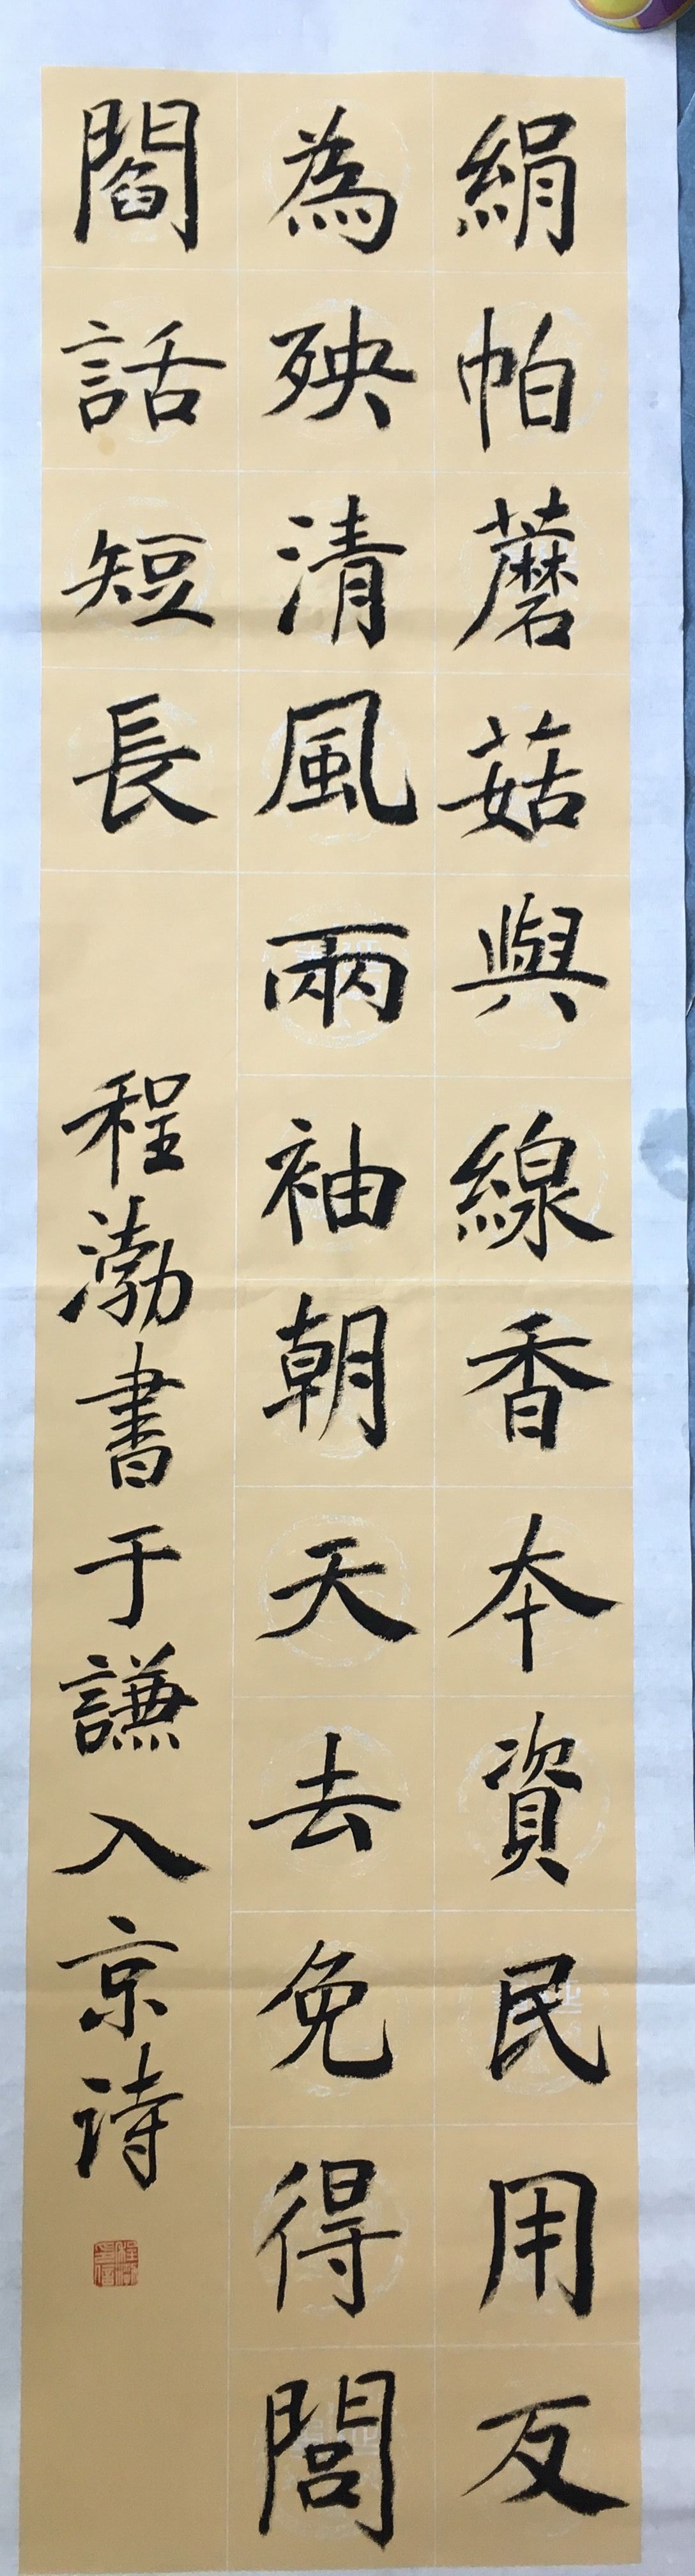 絹帕蘑菇與線香本資民用反
為殃清風兩袖朝天去免得閭
閻話短長
程渤書于謙入京诗